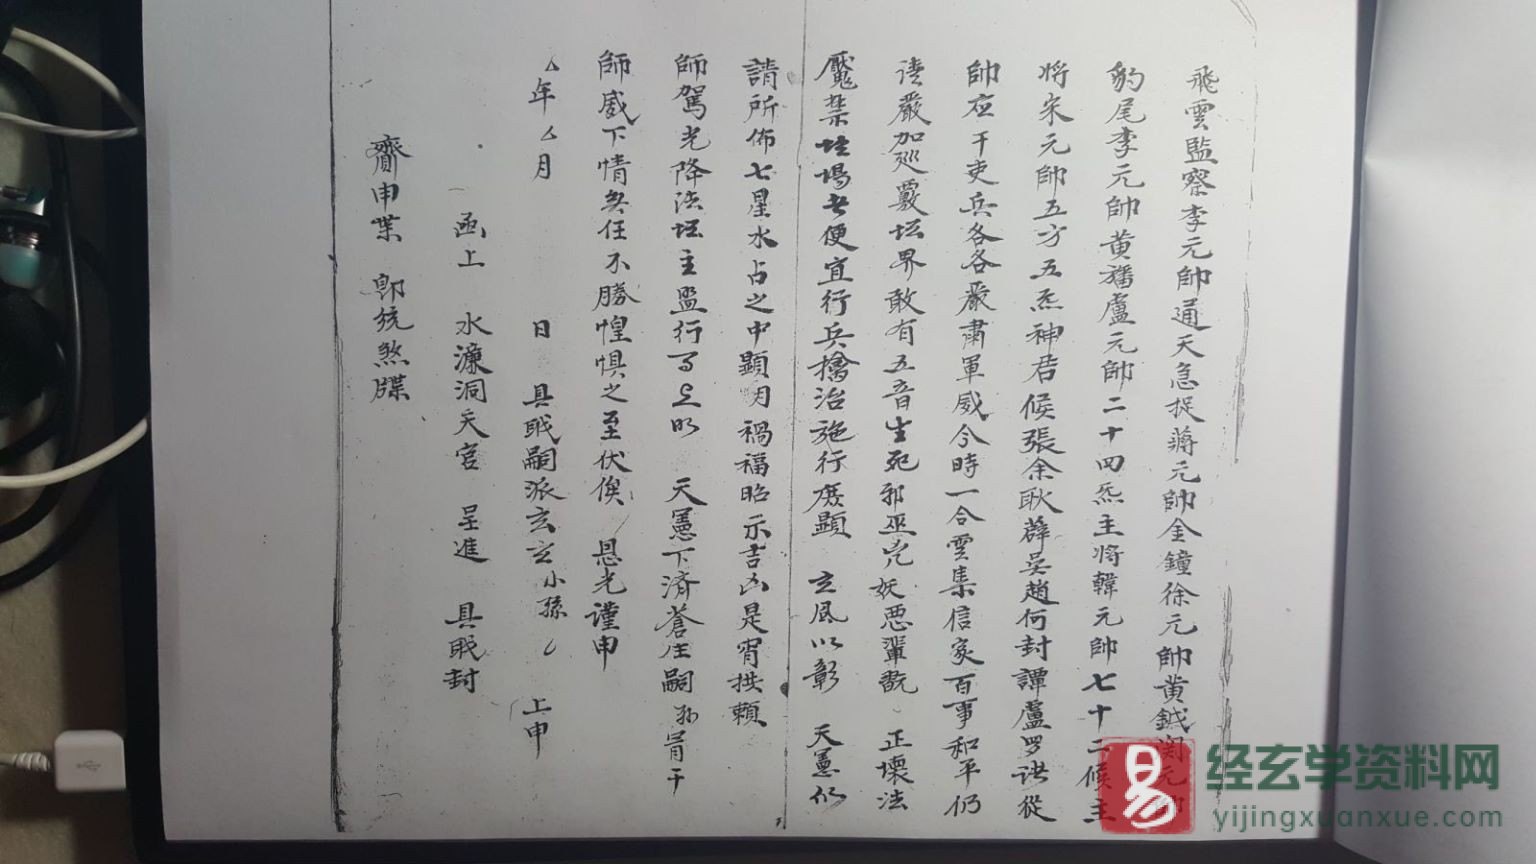 飛雲監察李元帥通天急捉蔣元帥金鐘徐元帥黄鉞関元帥
豹尾李元帥黄旛盧元帥二十四炁主將韓元帥七十二候主
將宋元帥五方五炁神君候張余耿薛吴趙何封譚盧罗洪從
帥应干吏兵各各嚴肅軍威今時一合雲集信家百事和平仍
請嚴加巡覈坛界敢有五音生死邪巫妖惡輩翫 正壞法
魘禁坛場先便宜行兵擒治施行庶顯 玄風以彰 天憲仍
請所佈七星水占之中顯明禍福昭示吉凶是宵拱賴
師駕光降法坛主盟行上明 天憲下濟蒼生嗣孙冒干
師威下情無任不勝惶惧之至伏俟 恩光謹申
厶年厶月 日 具職嗣派玄玄小孫厶 上申
函上 水濂洞天宫 呈進 具職封
齋申畢 即統煞牒
经玄学资料网
yijingxuanxue.com
易